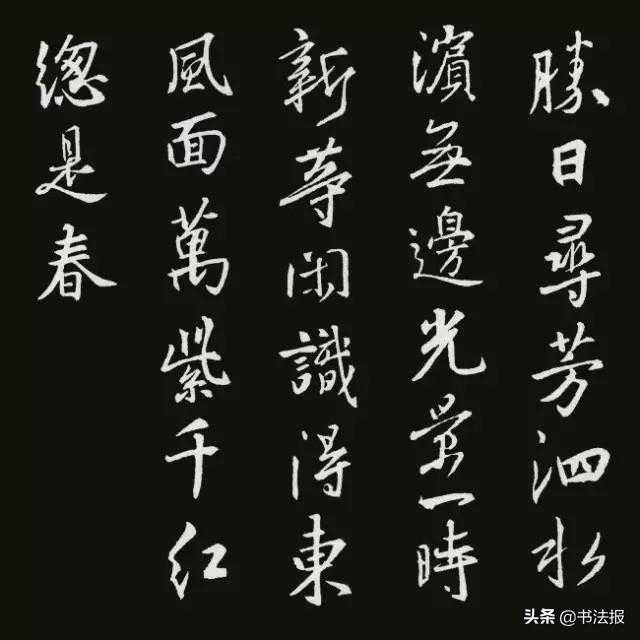 勝日尋芳泗水
濱無邊光景一時
新等閑識得東
風面萬紫千紅
總是春
头条 @书法报